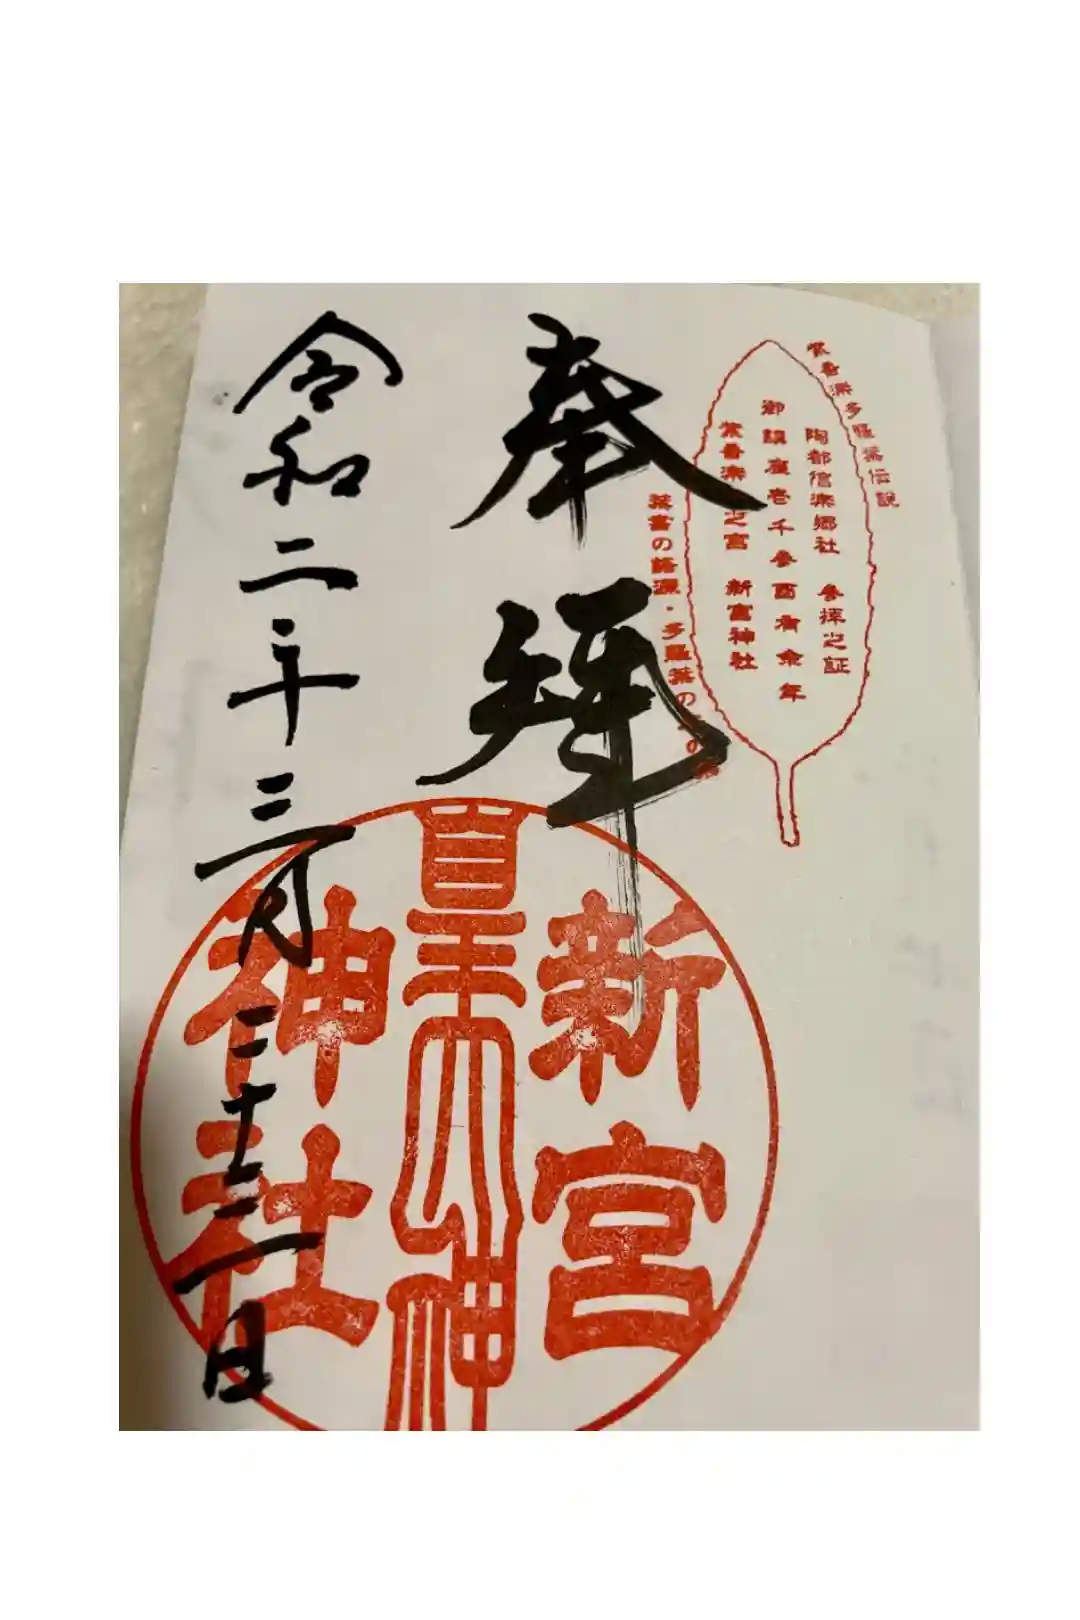 紫香楽多羅葉伝説
陶都信楽郷社 参拝之証
御鎮座壱千参百有余年
紫香楽之宮 新宮神社
葉書の語源・多羅葉の の葉
奉拝
新宮
皇大神
神社
令和二年三月二十三日